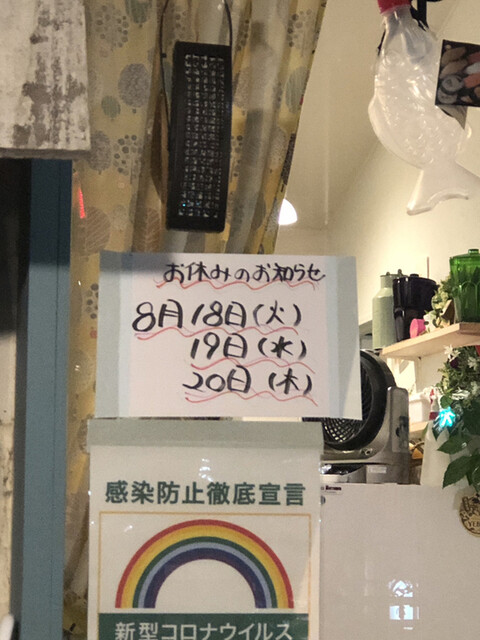 お休みのお知らせ
8月18日(火)
19日(水)
20日(木)
感染防止徹底宣言
新型コロナウイルス